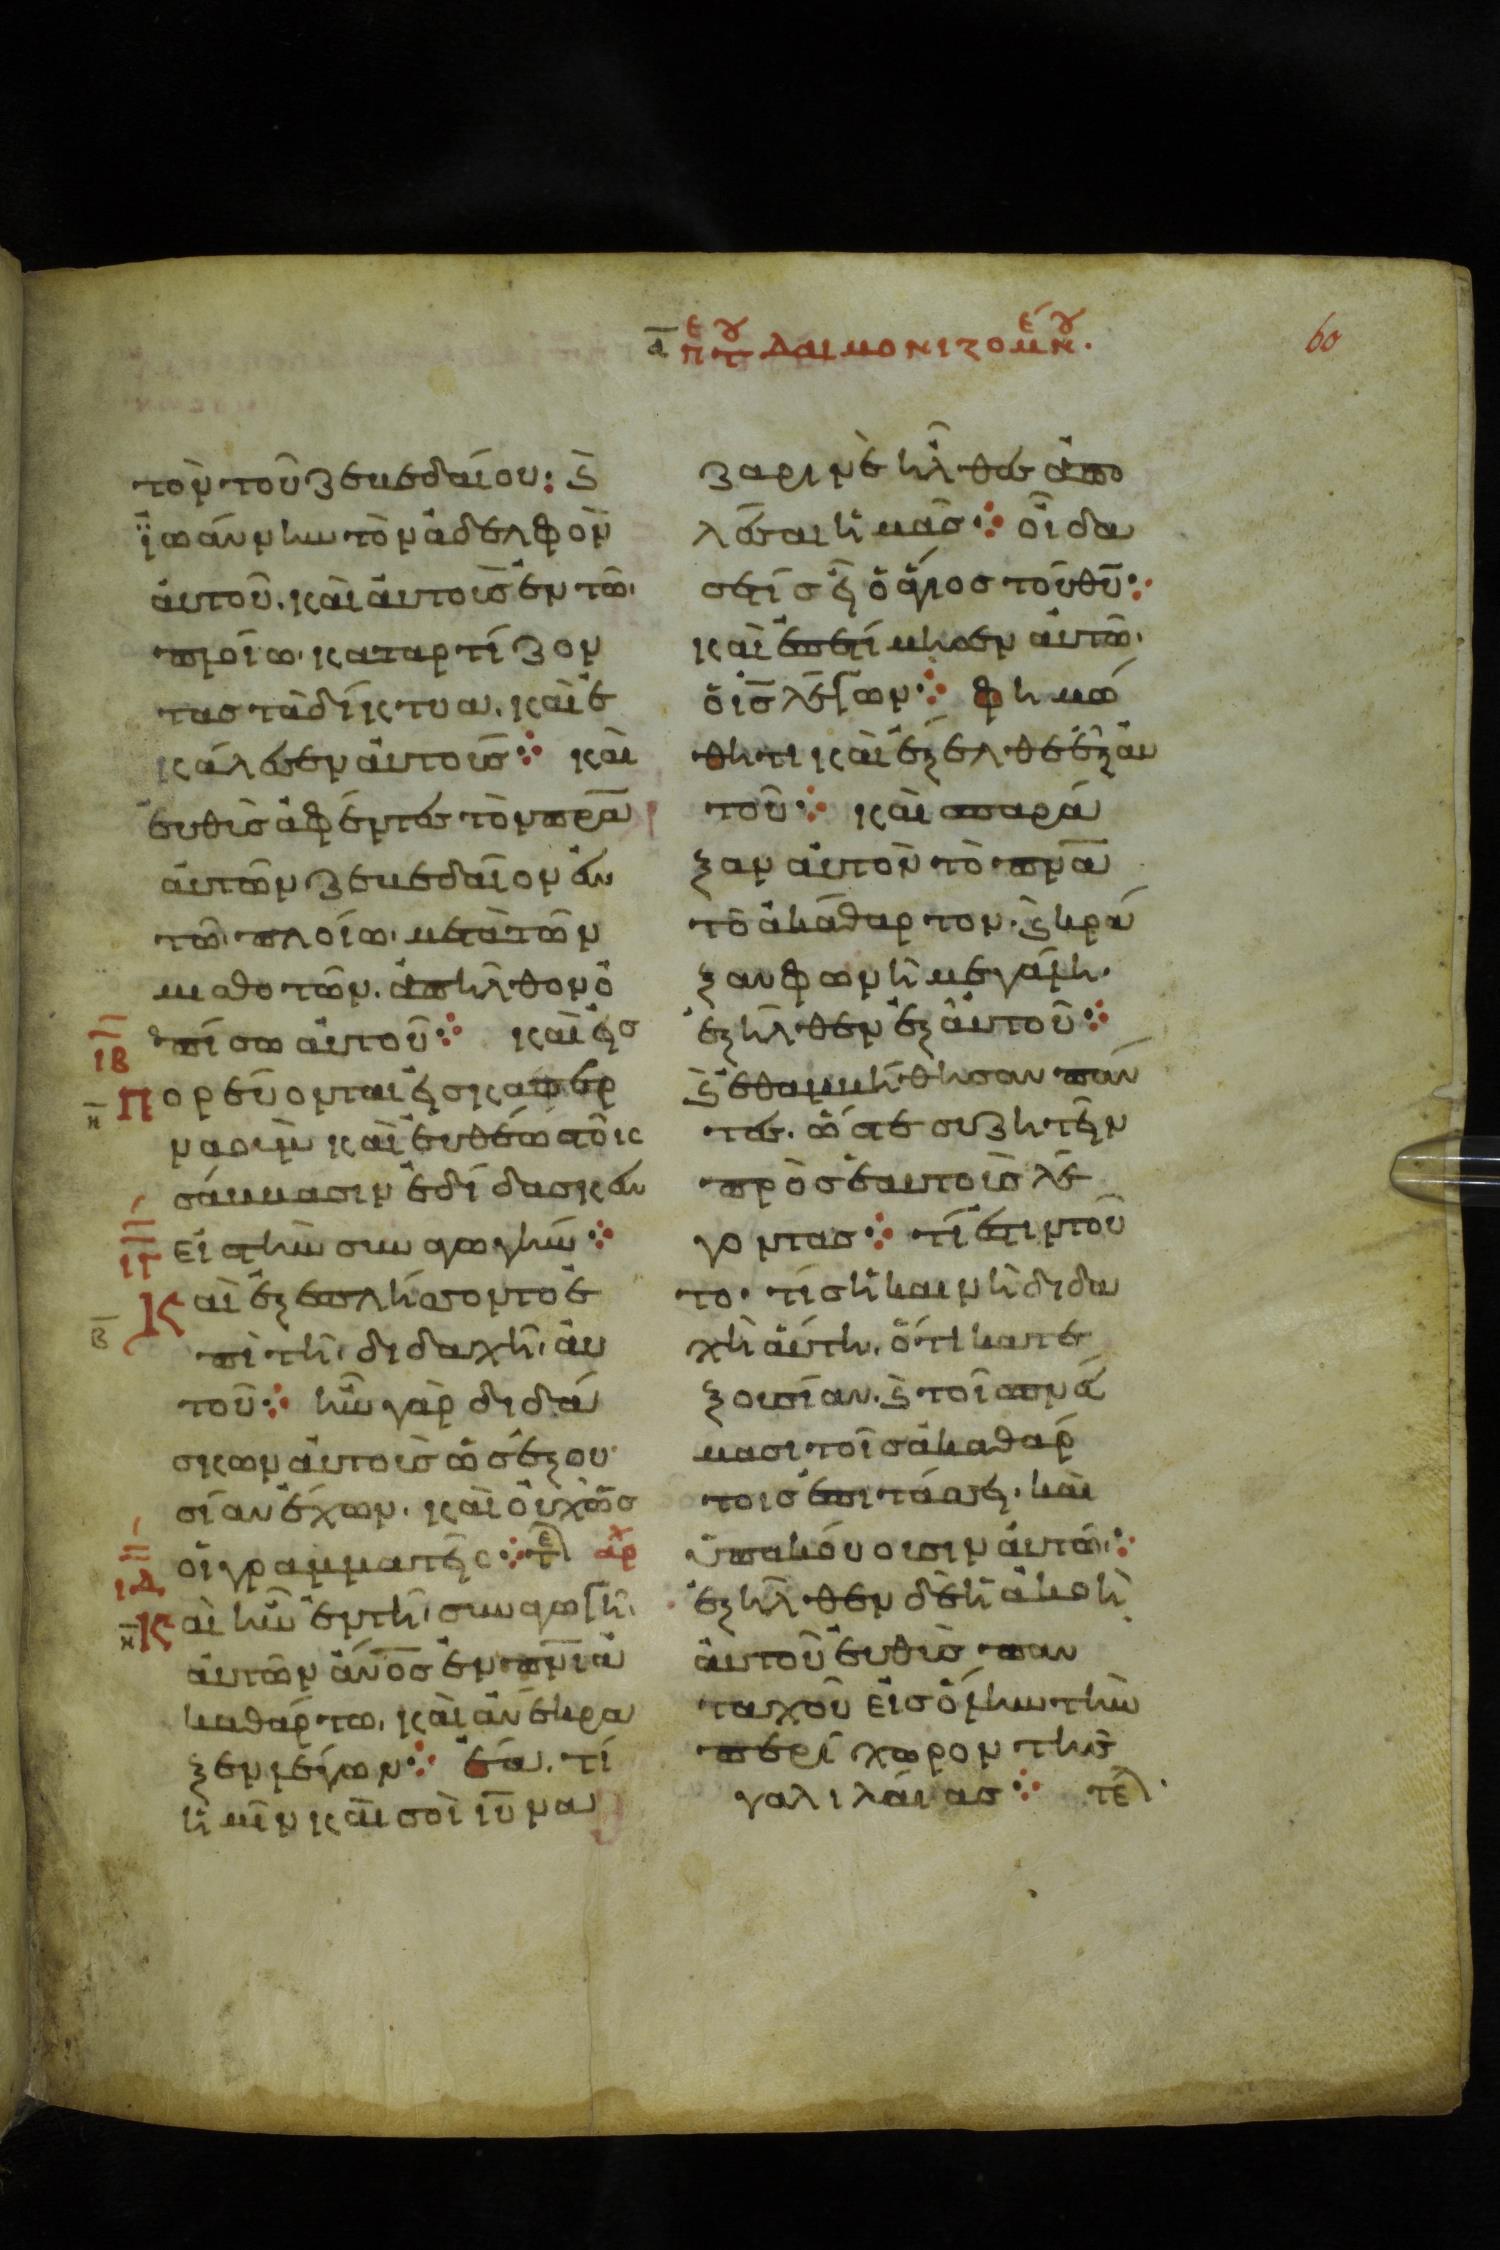 α πε του δαιμονιζομένου.
60
τὸν τοῦ ζεβεδαίου: κ̀
ἰωάννην τὸν ἀδελφὸν
ἀυτοῦ. καὶ ἀυτοὺς ἐν τῶ
πλοίω. καταρτίζον
τας τὰ δίκτυα. καὶ ἐ
κάλεσεν ἀυτούς ⁘ καὶ
ἐυθὺς ἀφέντες τὸν πρ̅α̅
ἀυτῶν ζεβεδαῖον ἐν
τῶ πλοίω. μετὰ τῶν
μαθοτῶν. ἀπῆλθον ὀ
ΙΒ
πίσω ἀυτοῦ ⁘ καὶ εἰσ
η
Πορεύονται εἰς καπερ
ναοὺμ καὶ ἐυθέως τοῖς
σάββασιν ἐδίδασκεν
ΙΓ
εἰς τὴν συναγωγήν ⁘
β
Καὶ ἐξεπλήσσοντο ἐ
πὶ τῆ διδαχῆ ἀυ
τοῦ ⁘ ἦν γὰρ διδά
σκων ἀυτοὺς ὡς ἐξου
σίαν ἔχων. καὶ οὐχ ὡς
ΙΔ
οἱ γραμματεῖς ⁘ τελ αρχ
η
Καὶ ἦν ἐν τῆ συναγωγῆ
ἀυτῶν ἄν̅ο̅ς̅ ἐν πν̅ι̅ ἀ
καθάρτω, καὶ ἀνέκρα
ξεν λέγων ⁘ ἔα. τί
ἡμῖν καὶ σοὶ ιυ̅ να
ζαρινέ ἦλθες ἀπο
λέσαι ἡμᾶς ⁘ οἶδα
σε τίς εἶ ὁ ἅγιος τοῦ θυ̅ ⁘
καὶ ἐπετίμησεν ἀυτῶ.
ὁ ις̅ λέγων ⁘ φημώ
θητι καὶ ἔξελθε ἐξ ἀυ
τοῦ ⁘ καὶ σπαρά
ξαν ἀυτὸν τὸ πν̅α̅
τὸ ἀκάθαρτον. κ̀ κρά
ξαν φωνῆ μεγάλη.
ἐξῆλθεν ἐξ ἀυτοῦ ⁘
κ̀ ἐθαμβήθησαν πάν
τες. ὥστε συζητεῖν
πρὸς ἑαυτοὺς λέ
γοντας ⁘ τί ἐστιν τοῦ
το. τίς ἡ καινὴ διδα
χὴ ἀύτη. ὅτι κατ ἐ
ξουσίαν. κ̀ τοῖς πνέυ
μασι τοῖς ἀκαθάρ
τοις ἐπιτάσσει. καὶ
ὑπακόυουσιν ἀυτῶ ⁘
ἐξῆλθεν δὲ ἡ ἀκοὴ
ἀυτοῦ ἐυθὺς παν
ταχοῦ εἰς ὅλην τὴν
περίχωρον τῆς
γαλιλάιας ⁘ τελ